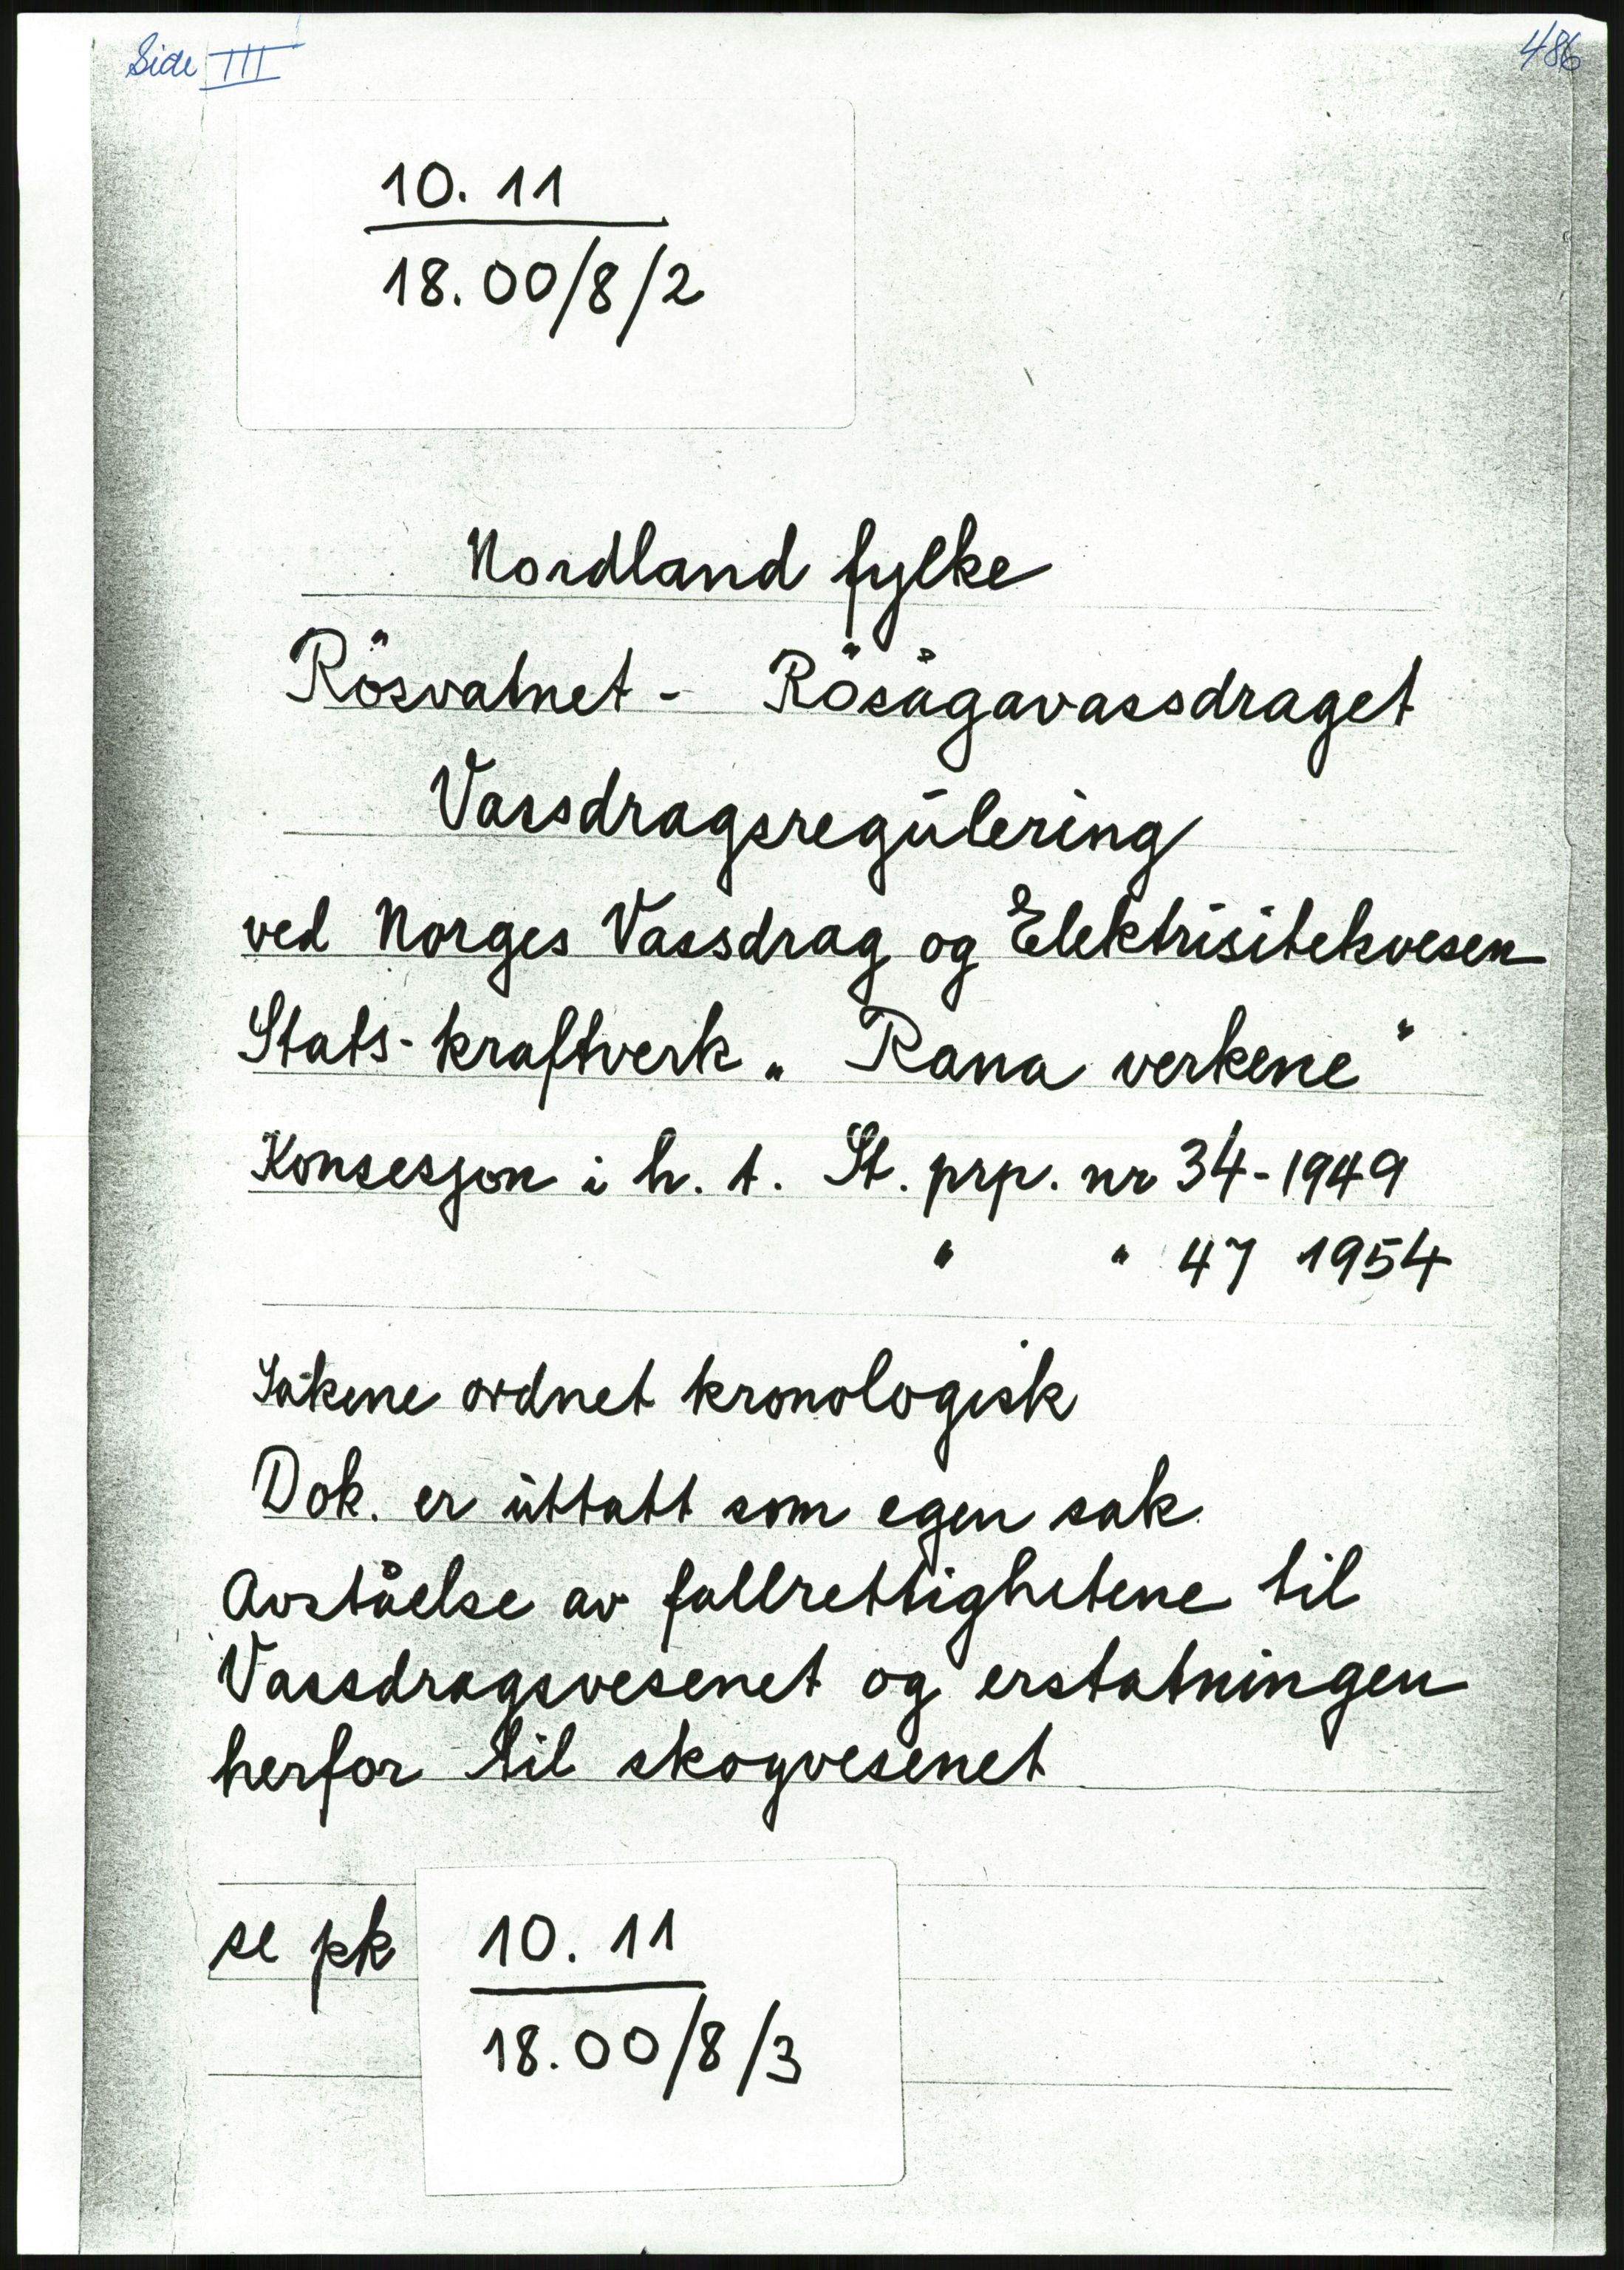 Side III
486
10. 11
18.00/8/2
Nordland fylke
Rösvatnet - Rösågavassdraget
Vassdragsregulering
ved Norges Vassdrag og Elektrisitetsvesen
Stats-kraftverk „ Rana verkene"
Konsesjon i h. t. St. prp. nr 34-1949
" " 47 1954
Sakene ordnet kronologisk
Dok. er uttatt som egen sak
Avståelse av fallrettighetene til
Vassdragsvesenet og erstatningen
herfor til skogvesenet
se pk 10. 11
18.00/8/3